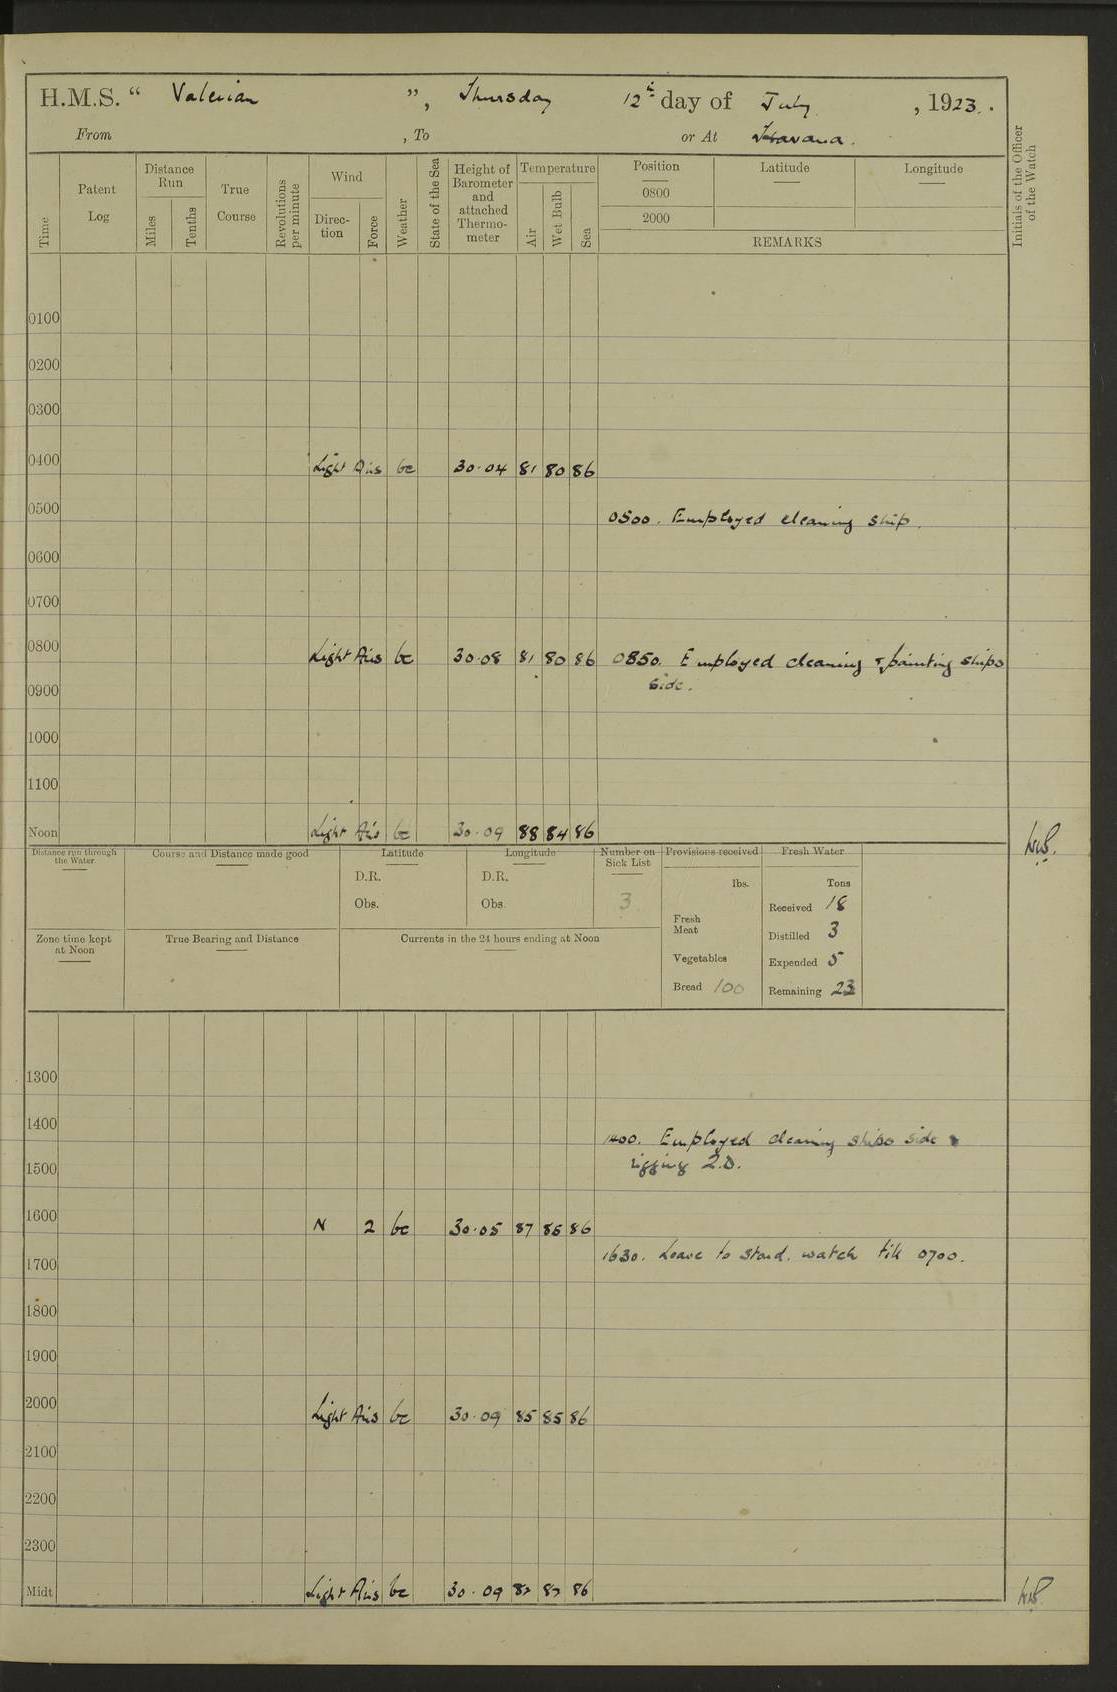 H.M.S. “ Valerian ”, Thursday 12th day of July , 1923.
From , To or At Havana.
Time
Patent Log
Distance Run
Miles
Tenths
True Course
Revolutions per minute
Wind
Direc-tion
Force
Weather
State of the Sea
Height of Barometer and attached Thermo-meter
Temperature
Air
Wet Bulb
Sea
Position
Latitude
Longitude
0800
2000
REMARKS
Initials of the Officer of the Watch
0100
0200
0300
0400 Light Airs bc 30.04 81 80 86
0500 0500. Employed cleaning ship.
0600
0700
0800 Light Airs bc 30.08 81 80 86 0850. Employed cleaning & painting ships
side.
0900
1000
1100
Noon Light Airs bc 30.09 88 84 86
Distance run through the Water
Course and Distance made good
Latitude
D.R.
Obs.
Longitude
D.R.
Obs.
Number on Sick List
3
Provisions received
lbs.
Fresh Meat
Vegetables
Bread 100
Fresh Water
Tons
Received 18
Distilled 3
Expended 5
Remaining 23
Zone time kept at Noon
True Bearing and Distance
Currents in the 24 hours ending at Noon
1300
1400 1400. Employed cleaning ships side &
rigging Q.D.
1500
1600 N 2 bc 30.05 87 85 86
1630. Leave to starbd. watch till 0700.
1700
1800
1900
2000 Light Airs bc 30.09 85 85 86
2100
2200
2300
Midt Light Airs bc 30.09 86